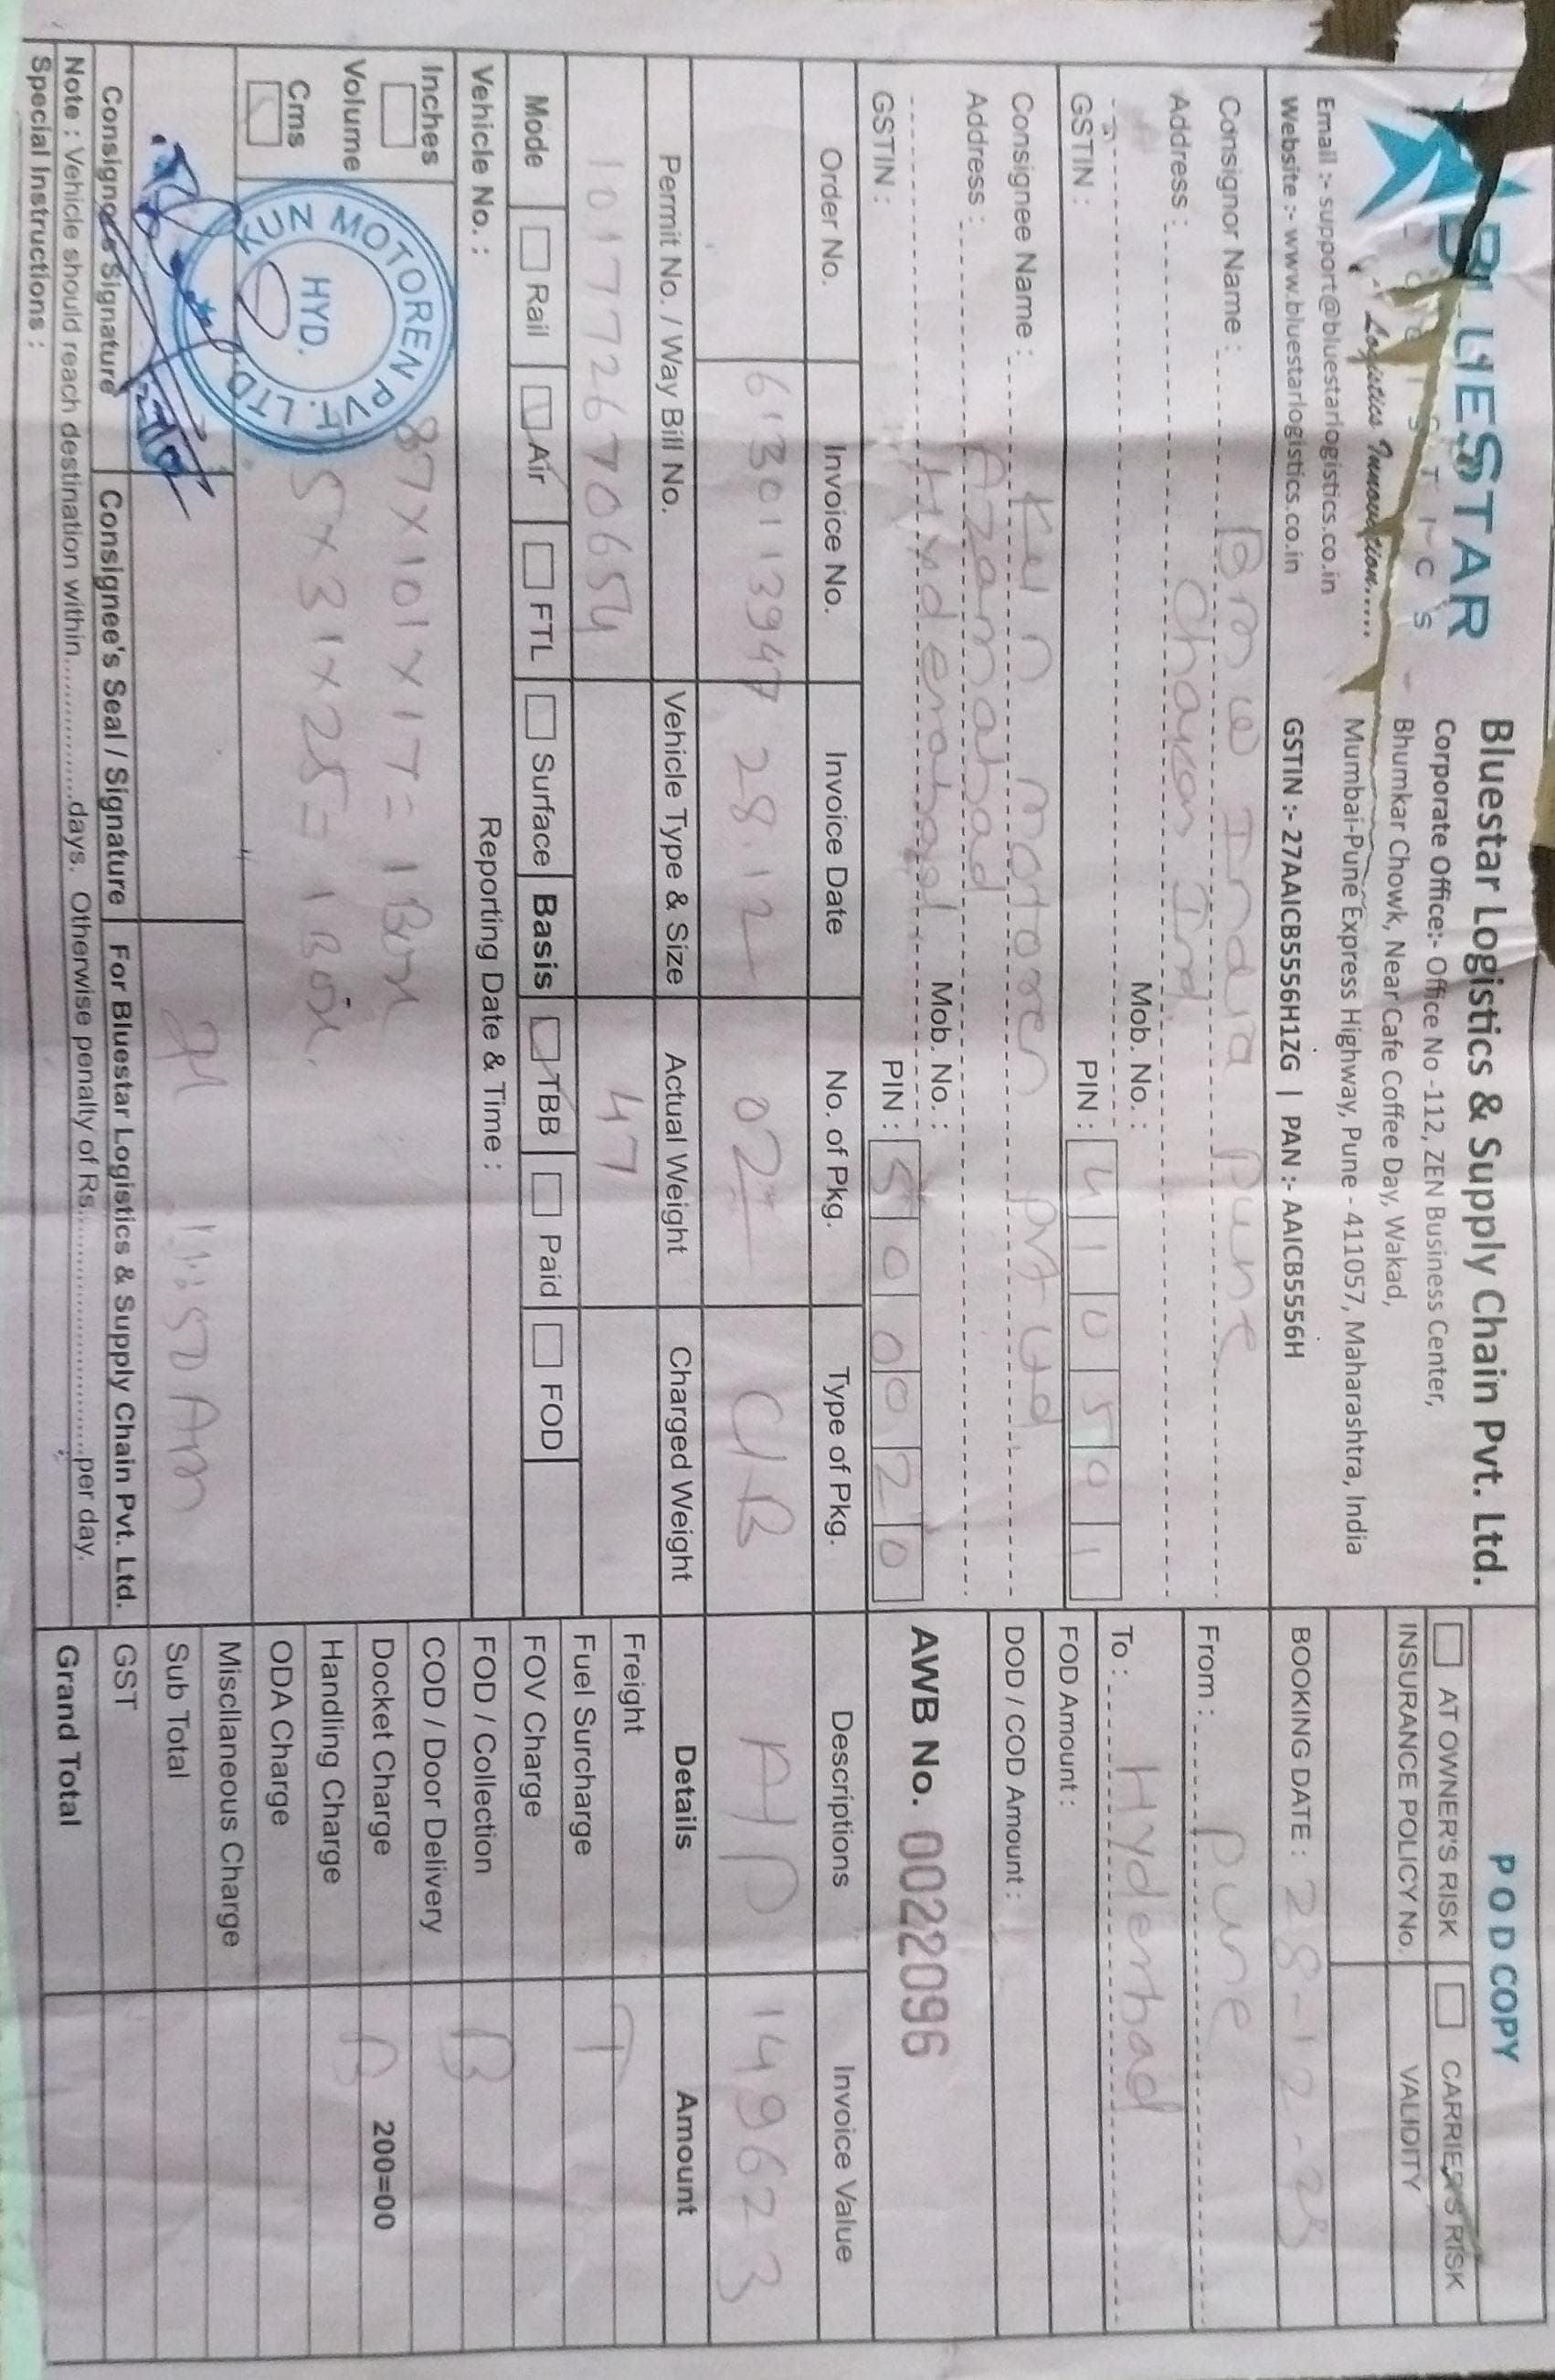 BLUESTAR
LOGISTICS
Logistics Innovation.....
Email :- support@bluestarlogistics.co.in
Website :- www.bluestarlogistics.co.in
Bluestar Logistics & Supply Chain Pvt. Ltd.
Corporate Office:- Office No -112, ZEN Business Center,
Bhumkar Chowk, Near Cafe Coffee Day, Wakad,
Mumbai-Pune Express Highway, Pune - 411057, Maharashtra, India
GSTIN :- 27AAICB5556H1ZG | PAN :- AAICB5556H
P O D COPY
AT OWNER'S RISK CARRIER'S RISK
INSURANCE POLICY No. VALIDITY
BOOKING DATE : 28-12-23
Consignor Name : BMW India Pune
Address : Chakan Ind.
Mob. No. :
GSTIN : PIN : 410501
From : Pune
To : Hyderbad
FOD Amount :
DOD / COD Amount :
Consignee Name : KUN motoren pvt Ltd.
Address : Azamabad
Hyderabad Mob. No. :
GSTIN : PIN : 500020
AWB No. 0022096
Order No. Invoice No. Invoice Date No. of Pkg. Type of Pkg. Descriptions Invoice Value
6130113947 28.12 02 C/B A/P 149623
Permit No. / Way Bill No. Vehicle Type & Size Actual Weight Charged Weight
101772670654 47
Mode Rail Air FTL Surface Basis TBB Paid FOD
Vehicle No. : Reporting Date & Time :
Inches
Volume
Cms
87X101X17= 1 Box
5X31X25= 1 Box.
KUN MOTOREN PVT. LTD.
HYD.
11:50 Am
Consignor's Signature Consignee's Seal / Signature For Bluestar Logistics & Supply Chain Pvt. Ltd.
Note : Vehicle should reach destination within.................days. Otherwise penalty of Rs..............................per day.
Special Instructions :
Details Amount
Freight T
Fuel Surcharge
FOV Charge
FOD / Collection B
COD / Door Delivery
Docket Charge B 200=00
Handling Charge
ODA Charge
Miscllaneous Charge
Sub Total
GST
Grand Total